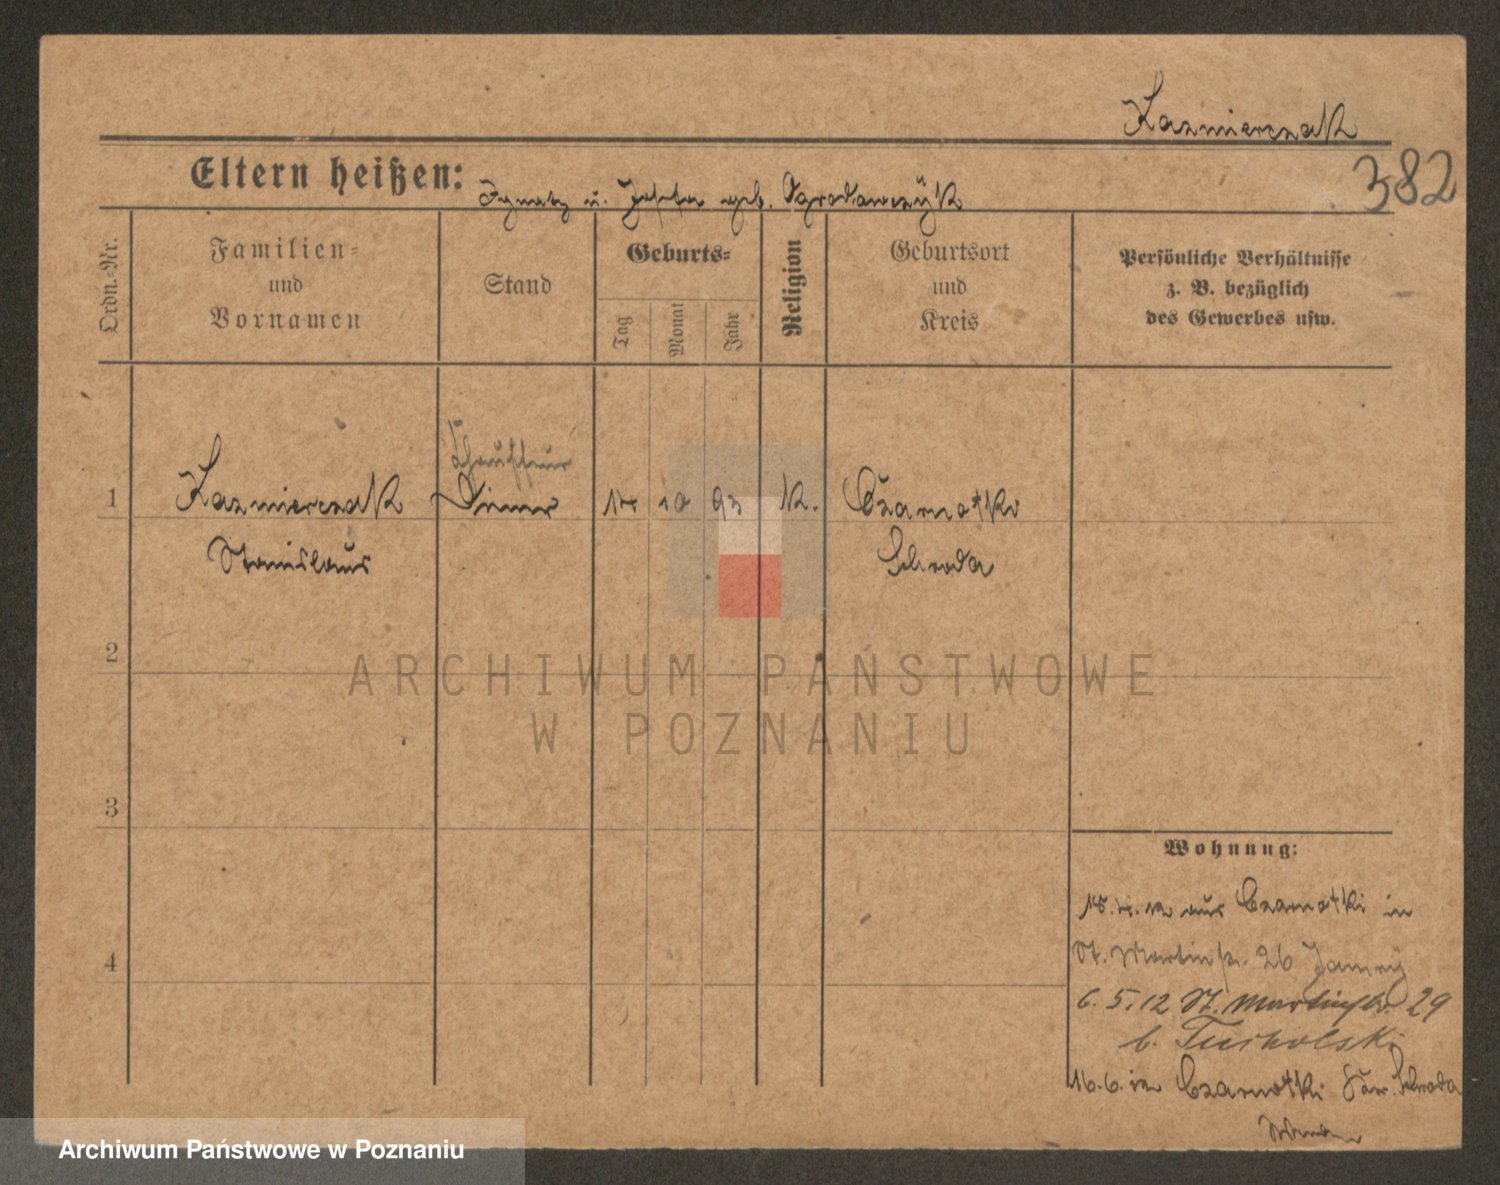 Kazmierczak
382
Eltern heißen: Ignatz u. Josefa geb. Ogrodowczÿk
Ordn.-Nr.
Familien- und Vornamen
Stand
Geburts-
Tag
Monat
Jahr
Religion
Geburtsort und Kreis
Persönliche Verhältnisse
z. B. bezüglich
des Gewerbes usw.
Chauffeur
1 Kazmierczak Diener 14 10 93 K. Czarnotki
Stanislaus Schroda
2
3
4
Wohnung:
15. 4. 12 aus Czarnotki in
St. Martinstr. 26
6. 5. 12 St. Martinstr. 29
b. Tucholski
16. 6. in Czarnotki Schroda
ARCHIWUM PAŃSTWOWE
W POZNANIU
Archiwum Państwowe w Poznaniu